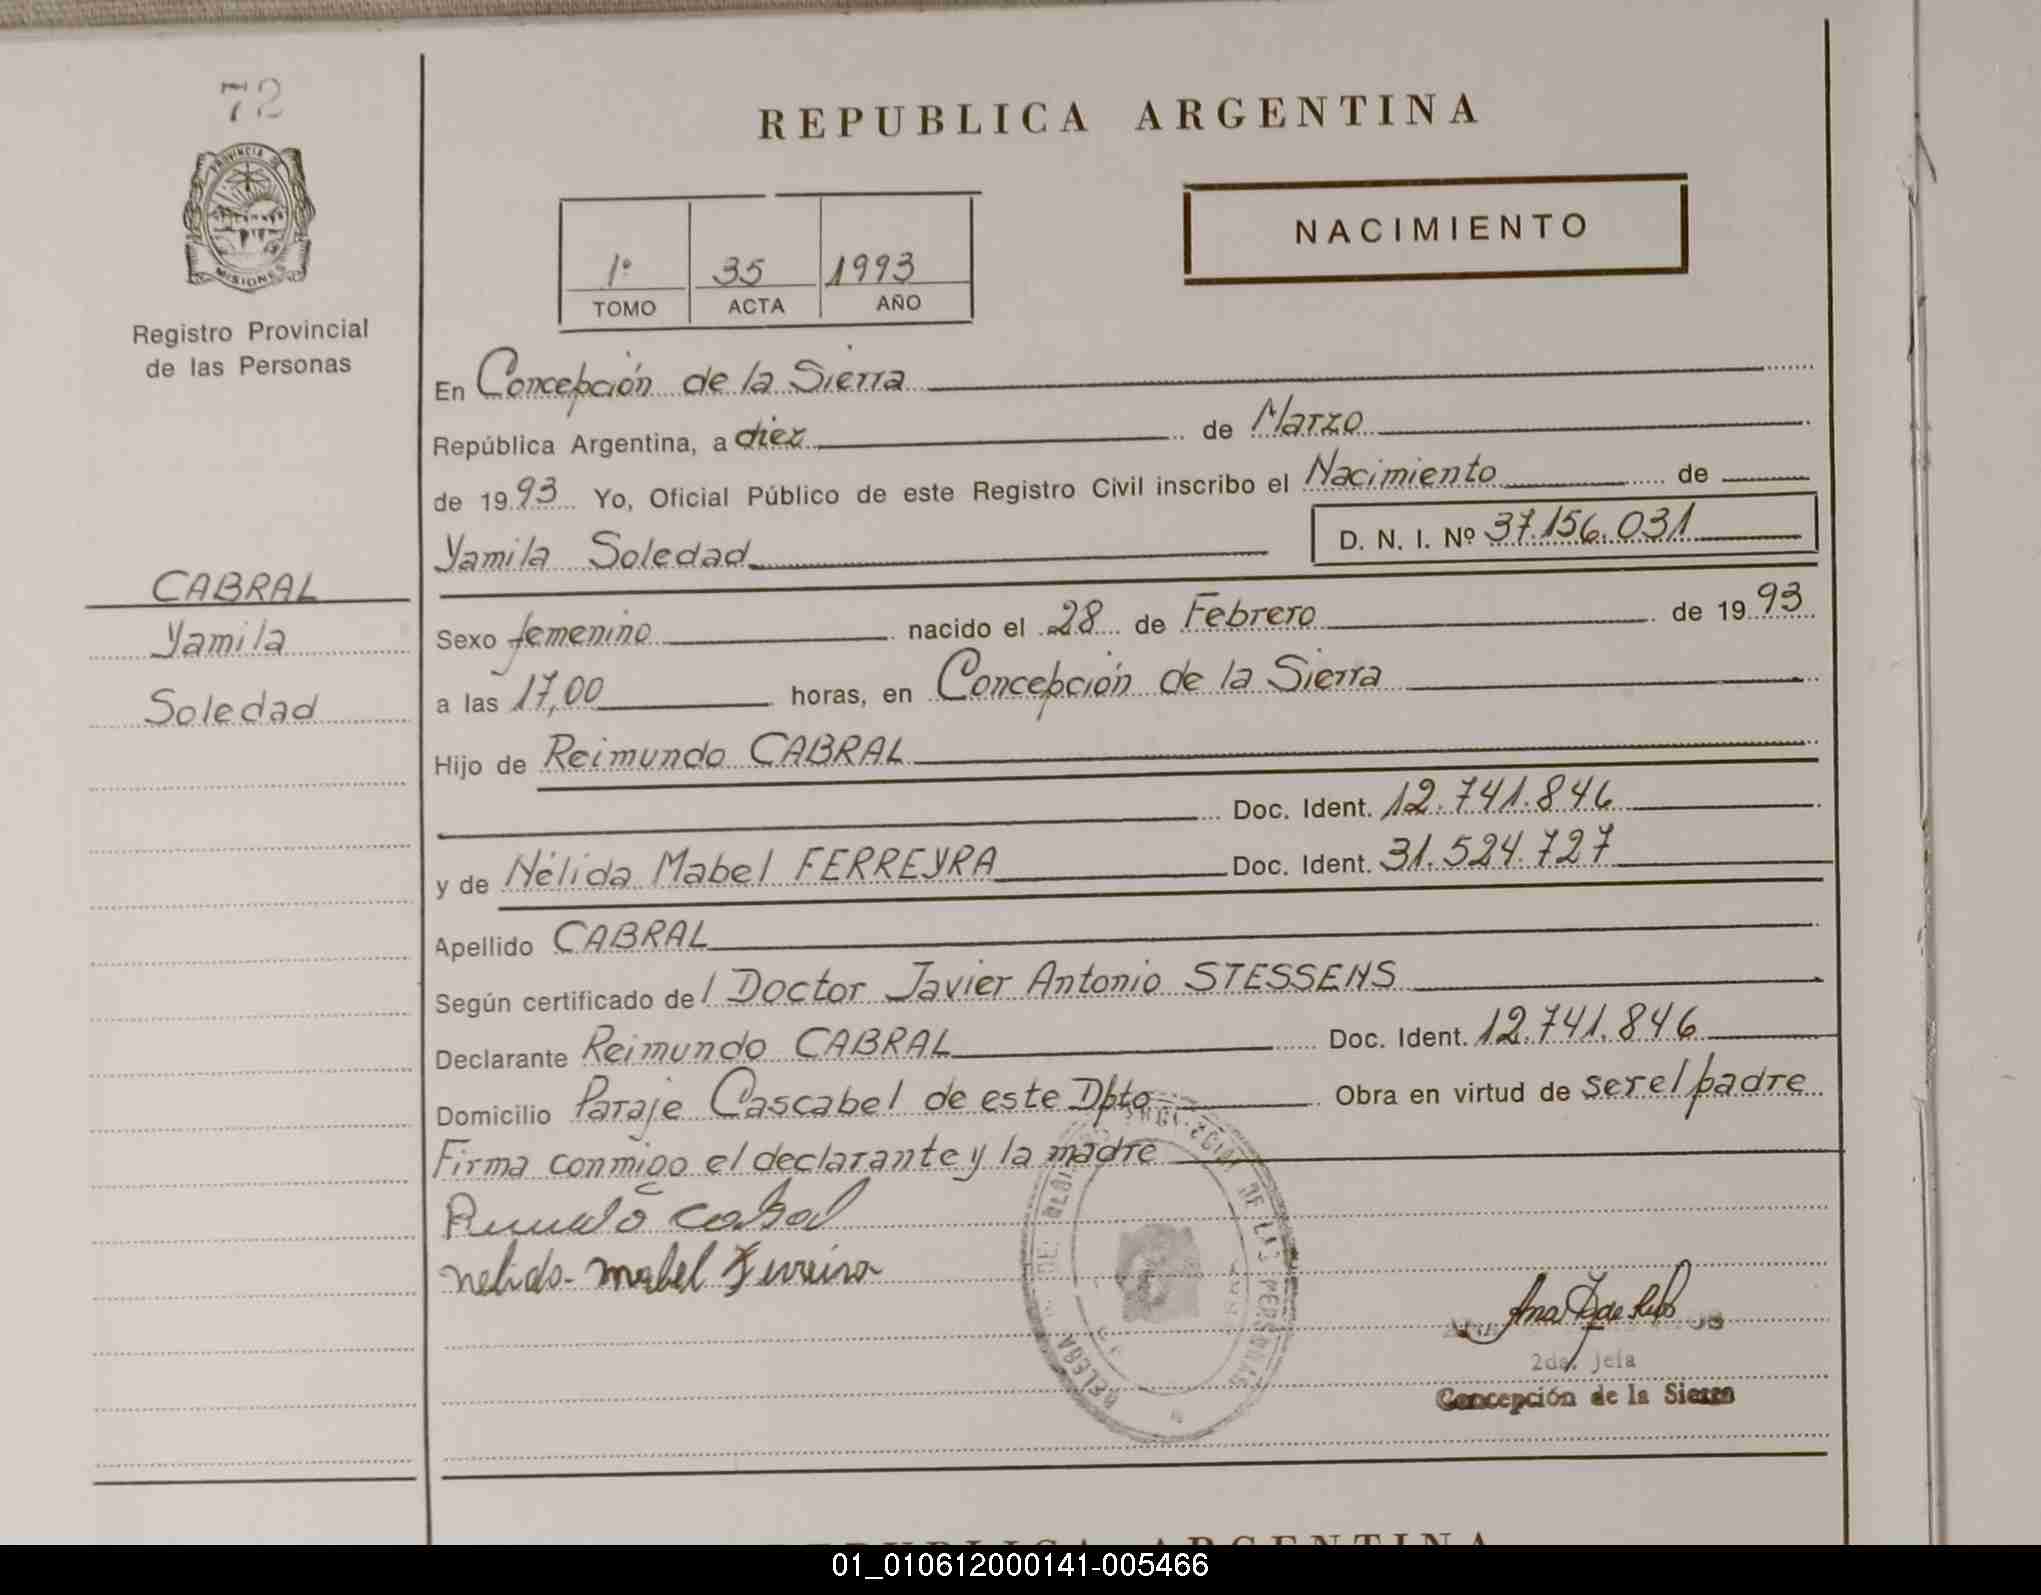 72
PROVINCIA DE
MISIONES
Registro Provincial
de las Personas
CABRAL
Yamila
Soledad
REPUBLICA ARGENTINA
NACIMIENTO
1º 35 1993
TOMO ACTA AÑO
En Concepción de la Sierra
República Argentina, a diez de Marzo
de 1993 Yo, Oficial Público de este Registro Civil inscribo el Nacimiento de
Yamila Soledad D. N. I. Nº 37.156.031
Sexo femenino nacido el 28 de Febrero de 1993
a las 17,00 horas, en Concepción de la Sierra
Hijo de Reimundo CABRAL
Doc. Ident. 12.741.846
y de Nélida Mabel FERREYRA Doc. Ident. 31.524.727
Apellido CABRAL
Según certificado del Doctor Javier Antonio STESSENS
Declarante Reimundo CABRAL Doc. Ident. 12.741.846
Domicilio Paraje Cascabel de este Dpto Obra en virtud de ser el padre
Firma conmigo el declarante y la madre
nelida mabel Ferreira
DE LAS PERSONAS
2da. Jefa
Concepción de la Sierra
REPUBLICA ARGENTINA
01_010612000141-005466